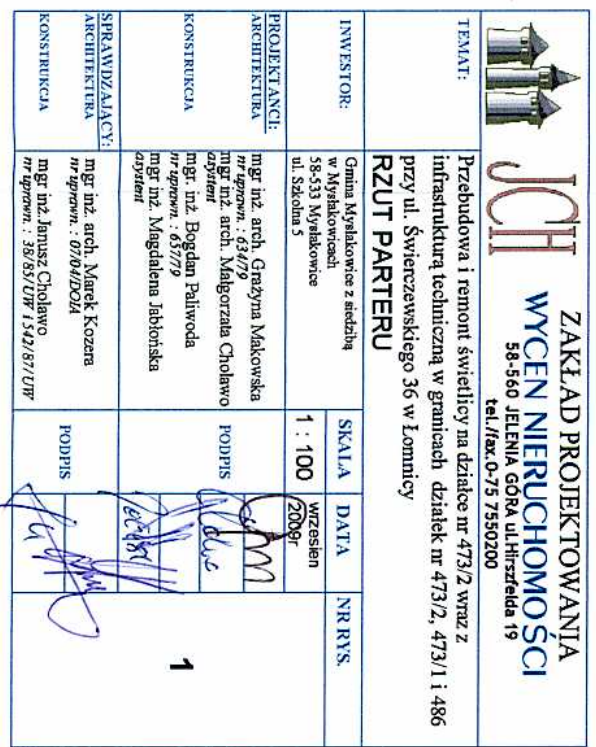 JCH
ZAKŁAD PROJEKTOWANIA
WYCEN NIERUCHOMOŚCI
58-560 JELENIA GÓRA ul.Hirszfelda 19
tel./fax.0-75 7550200
TEMAT:
Przebudowa i remont świetlicy na działce nr 473/2 wraz z
infrastrukturą techniczną w granicach działek nr 473/2, 473/1 i 486
przy ul. Świerczewskiego 36 w Łomnicy
RZUT PARTERU
INWESTOR:
Gmina Mysłakowice z siedzibą
w Mysłakowicach
58-533 Mysłakowice
ul. Szkolna 5
SKALA
DATA
NR RYS.
1 : 100
wrzesien
2009r
1
PROJEKTANCI:
ARCHITEKTURA
mgr inż. arch. Grażyna Makowska
nr uprawn. : 634/79
mgr inż. arch. Małgorzata Cholawo
asystent
PODPIS
KONSTRUKCJA
mgr. inż. Bogdan Paliwoda
nr uprawn. : 657/79
mgr inż. Magdalena Jabłońska
asystent
SPRAWDZAJĄCY:
ARCHITEKTURA
mgr inż. arch. Marek Kozera
nr uprawn. : 07/04/DOIA
PODPIS
KONSTRUKCJA
mgr inż.Janusz Cholawo
nr uprawn. : 38/85/UW i 542/87/UW